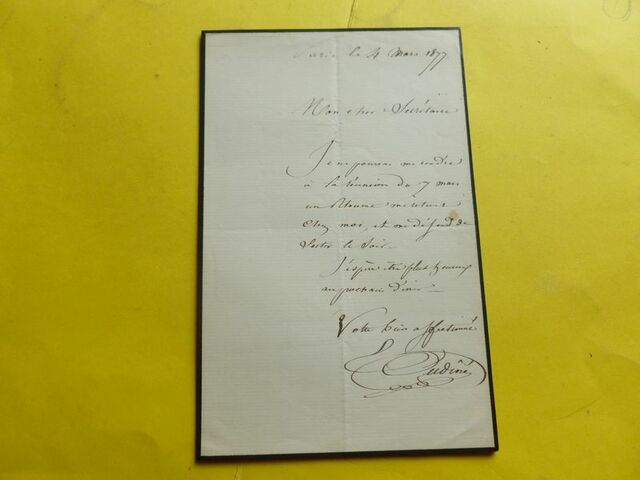 Paris le 4 Mars 1877
Mon cher Secrétaire
Je ne pourrai me rendre
à la réunion du 7 mars
un Rhume me retient
chez moi, et me défend de
Sortir le Soir.
J'espère être plus heureux
au prochain dîner
Votre bien affectionné